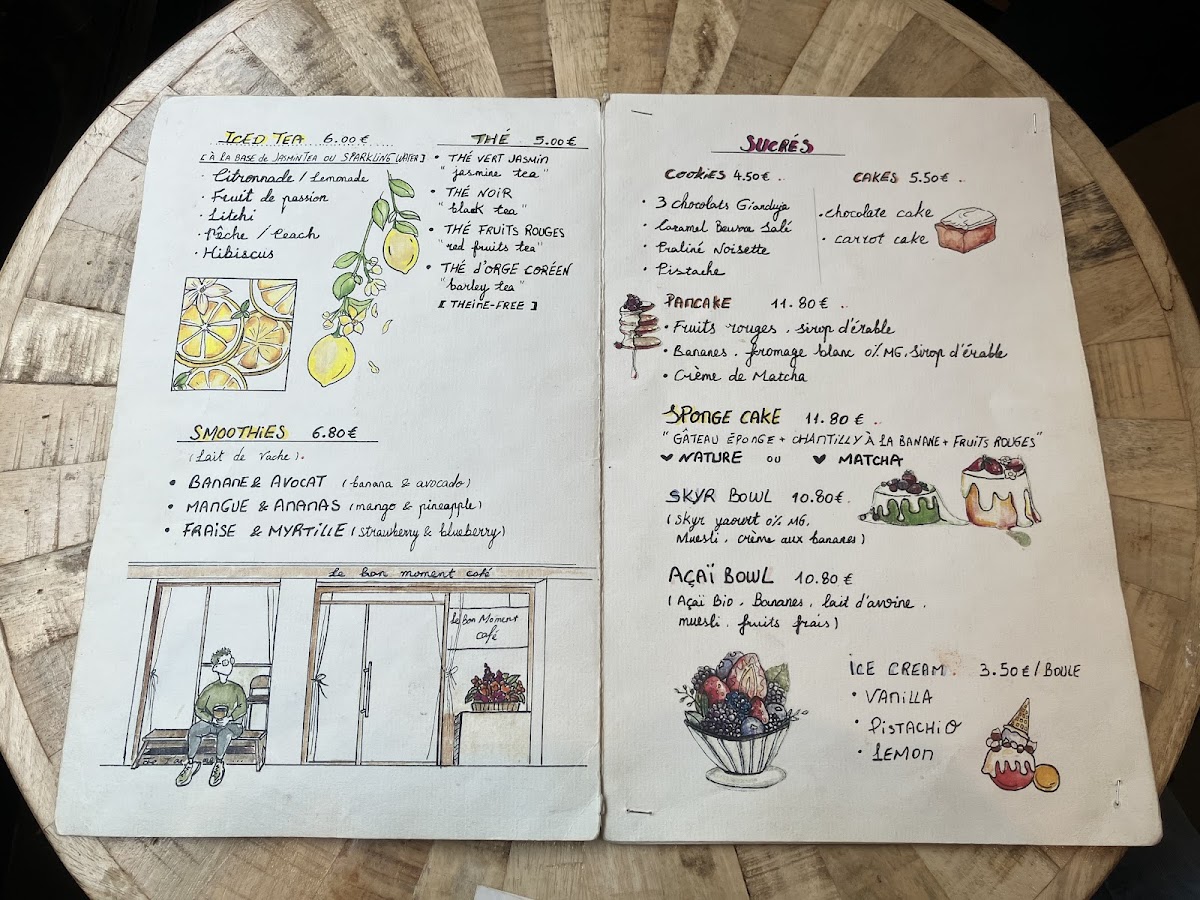 ICED TEA 6.00€
[À LA BASE de JASMIN TEA OU SPARKLING WATER]
• Citronnade / Lemonade
• Fruit de passion
• Litchi
• Pêche / Peach
• Hibiscus
THÉ 5.00€
• THÉ VERT JASMIN
"jasmine tea"
• THÉ NOIR
"black tea"
• THÉ FRUITS ROUGES
"red fruits tea"
• THÉ D'ORGE CORÉEN
"barley tea"
[THEINE-FREE]
SMOOTHIES 6.80€
(Lait de vache).
• BANANE & AVOCAT (banana & avocado)
• MANGUE & ANANAS (mango & pineapple)
• FRAISE & MYRTILLE (strawberry & blueberry)
le bon moment café
le bon Moment
café
SUCRÉS
COOKIES 4.50€.
• 3 chocolats Gianduja
• Caramel Beurre Salé
• Praliné Noisette
• Pistache
CAKES 5.50€..
• chocolate cake
• carrot cake
PANCAKE 11.80€..
• Fruits rouges, sirop d'érable
• Bananes, fromage blanc 0% MG, sirop d'érable
• Crème de Matcha
SPONGE CAKE 11.80€..
"GÂTEAU ÉPONGE + CHANTILLY À LA BANANE + FRUITS ROUGES"
♥ NATURE OU ♥ MATCHA
SKYR BOWL 10.80€.
(Skyr yaourt 0% MG,
Muesli, crème aux bananes)
AÇAÏ BOWL 10.80€
(Açaï Bio, Bananes, lait d'avoine,
muesli, fruits frais)
ICE CREAM 3.50€/BOULE
• VANILLA
• PISTACHIO
• LEMON